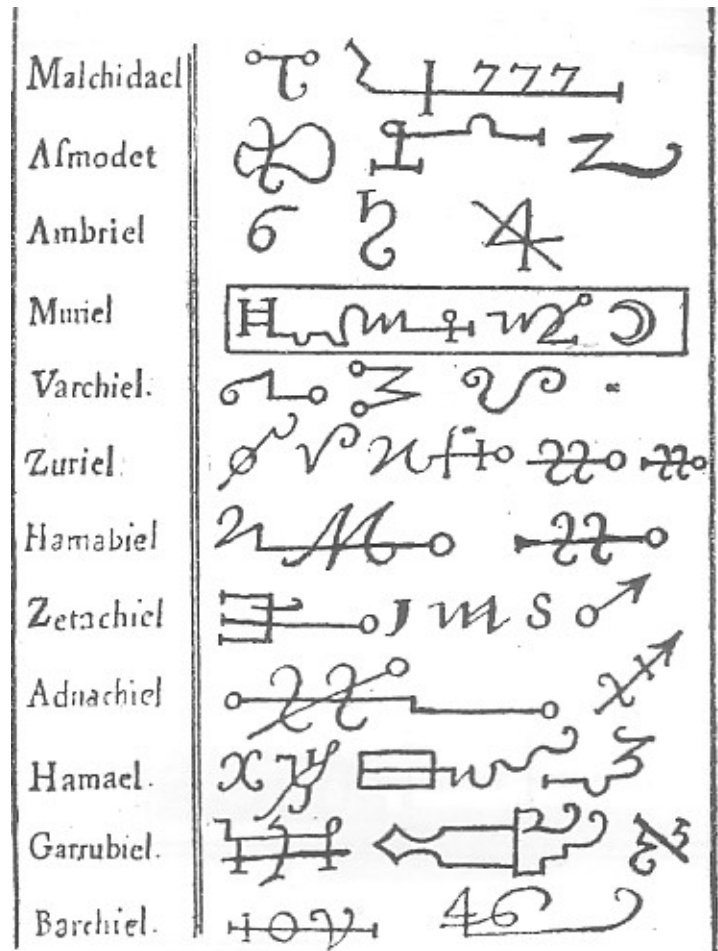 Malchidael 777
Aſmodet
Ambriel
Muriel
Varchiel.
Zuriel.
Hamabiel
Zetachiel
Adnachiel
Hamael.
Garrubiel.
Barchiel. 46